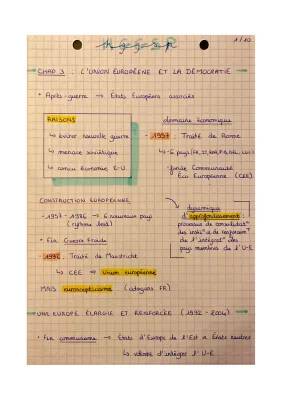 1/10
CHAP 3 : L'UNION EUROPÉENE ET LA DÉMOCRATIE
• Après-guerre → États Européens associés
RAISONS
↳ éviter nouvelle guerre
↳ menace soviétique
↳ concu économie E-U
domaine économique
• 1957 : Traité de Rome
↳ 6 pays
- fonde Communauté
Eco Européenne (CEE)
CONSTRUCTION EUROPÉENNE
- 1957 - 1986 → 6 nouveaux pays
• Fin Guerre Froide
: Traité de Maastricht
↳ CEE → Union européenne
MAIS euroscepticisme
dynamique
d'approfondissement :
processus de
pays membres de l'U-E
UNE EUROPE ÉLARGIE ET RENFORCÉE (1992 - 2004)
• Fin communisme → États d'Europe de l'Est + États neutres
↳ d'intégrer l'U-E